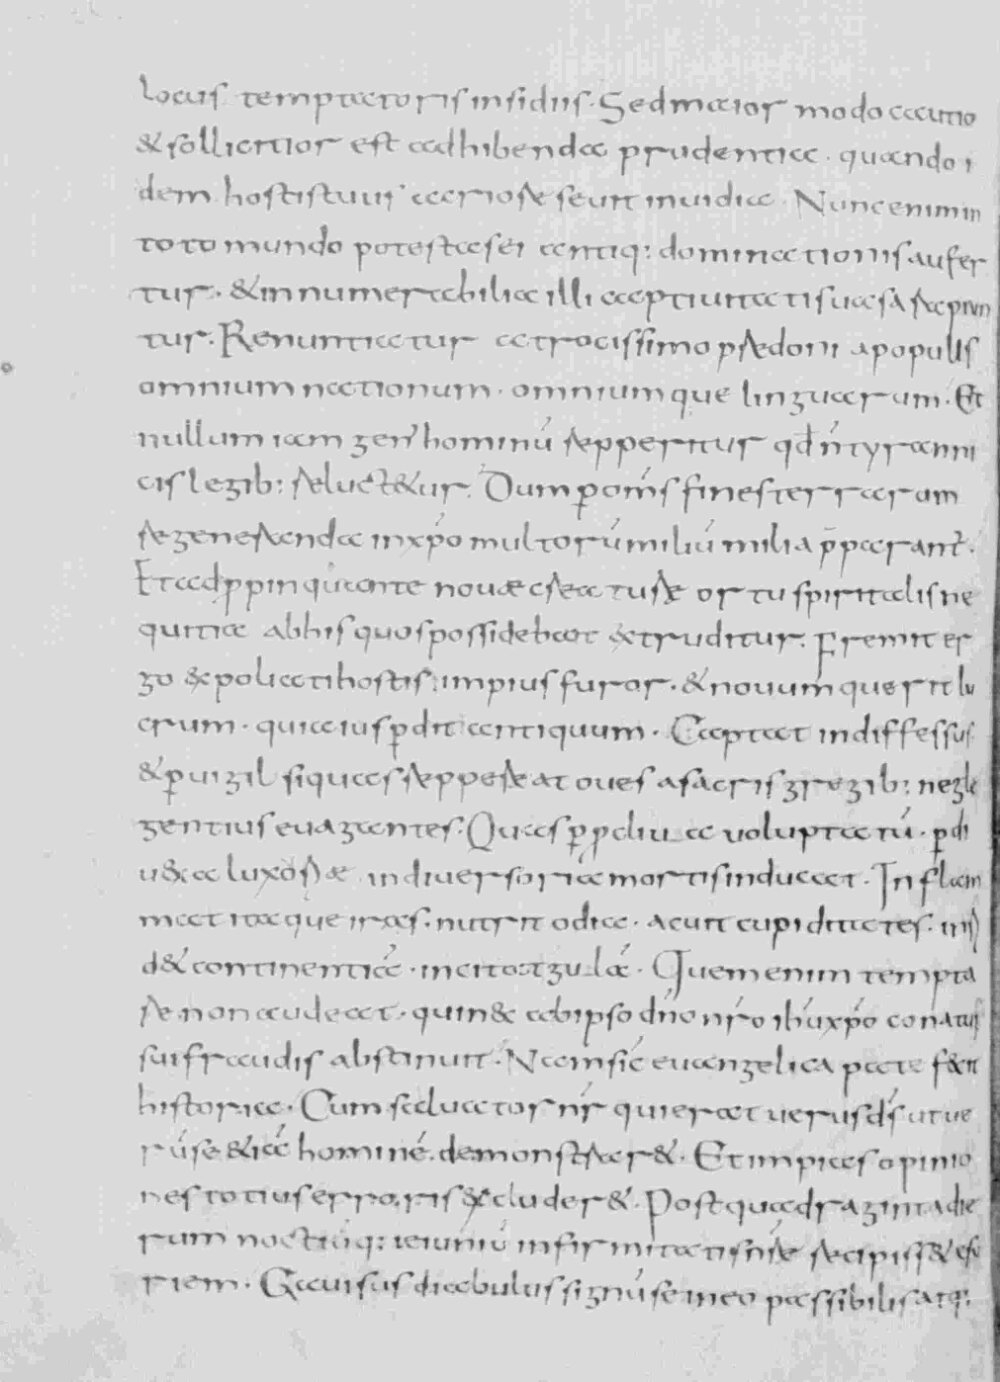 locus temptatoris insidiis. Sed maior modo cautio
& sollicitior est adhibenda prudentia. quando i
dem hostis tuus acriore seuit inuidia. Nunc enim in
toto mundo potestas ei antiq: dominationis aufer
tur. & innumerabilia illi captiuitatis uasa rapiun
tur. Renuntiatur atrocissimo praedoni a populis
omnium nationum. omnium que linguarum. Et
nullum iam gen' hominū repperitur qd ń tyranni
cis legib: reluct&ur. Dum p omś fines terrarum
regeneranda in xpo multorū miliū milia pparant.
Et adppinquante nouae creaturae ortu spiritalis ne
quitia ab his quos possidebat extruditur. Fremit er
go expoliati hostis impius furor. & nouum querit lu
crum. quia ius pdit antiquum. Captat indiffessus
& puigil si quas reppereat oues a sacris gregib: negle
gentius euagantes. Quas p pcliuia uoluptatū. p di
u&a luxoriae in diuersoria mortis inducat. Inflam
mat itaque iras. nutrit odia. acuit cupiditates. irri
d& continentiā. incitat gulā. Quem enim tempta
re non audeat. qui n& ab ipso dno nro ihu xpo conatus
sui fraudis abstinuit. Nam sic euangelica pate fecit
historia. Cum saluator nr qui erat uerus ds ut ue
rū se &iā hominē. demonstrar&. Et impias opinio
nes totius erroris excluder&. Post quadraginta die
rum noctiūq: ieiuniū infirmitatis nrae recipiss& esu
riem. Gauisus diabulus signū se in eo passibilis atq: